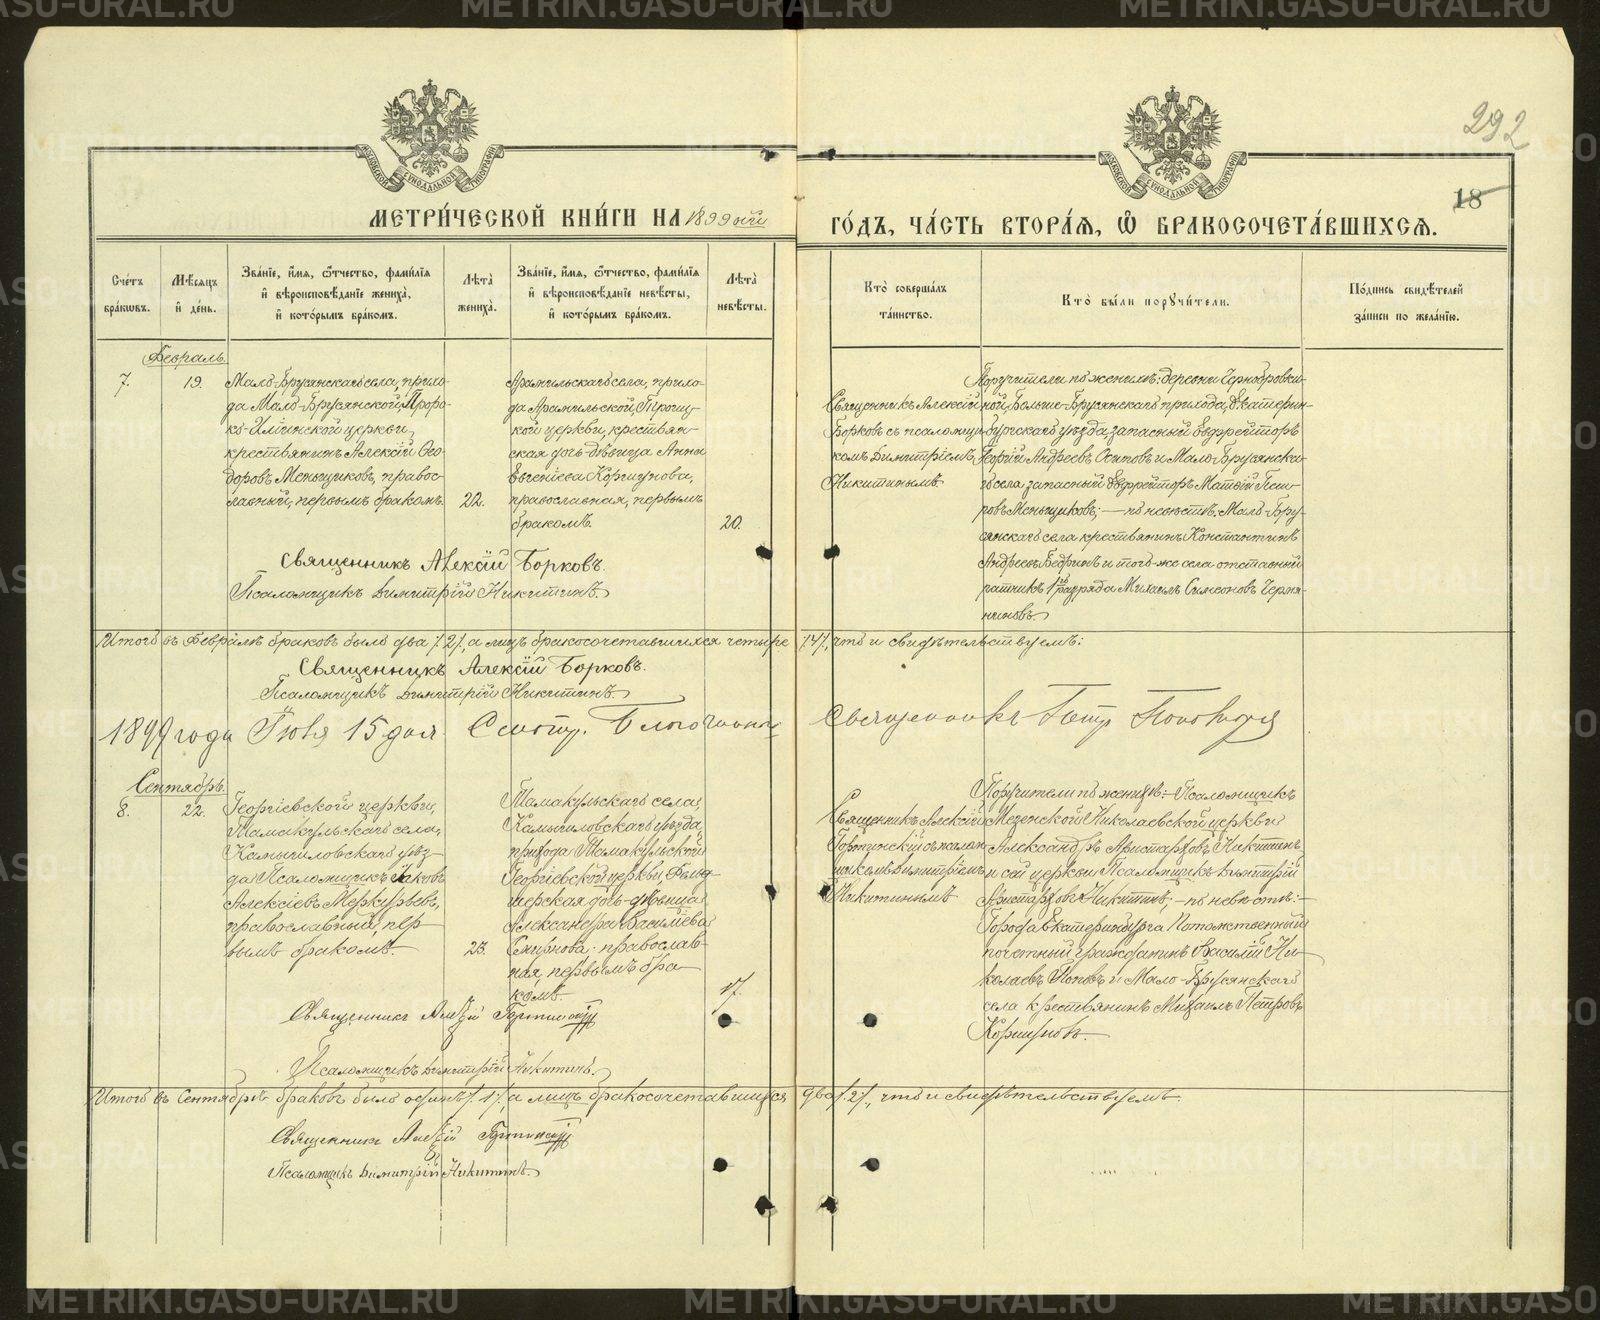 292
18
МОСКОВСКОЙ СѴНОДАЛЬНОЙ ТИПОГРАФІИ
МОСКОВСКОЙ СѴНОДАЛЬНОЙ ТИПОГРАФІИ
МЕТРИ́ЧЕСКОЙ КНИ́ГИ НА 1899 ый
ГО́ДЪ, ЧА́СТЬ ВТОРА́Я, Ѽ БРАКОСОЧЕТА́ВШИХСЯ.
Сче́тъ бра́кѡвъ.
Мѣ́сяцъ и҆ де́нь.
Зва́нїе, и҆́мя, ѻ҆́тчество, фамилїя и҆ вѣроисповѣ́данїе жениха̀, и҆ кото́рымъ бра́комъ.
Лѣ́та жениха̀.
Зва́нїе, и҆́мя, ѻ҆́тчество, фамилїя и҆ вѣроисповѣ́данїе невѣ́сты, и҆ кото́рымъ бра́комъ.
Лѣ́та невѣ́сты.
Кто̀ соверша́лъ та́инство.
Кто̀ бы́ли порꙋчи́тели.
По́дпись свидѣ́телей за́писи по жела́нїю.
Февраль.
7.
19.
Мало-Брусянскаго села, прихо-
да Мало-Брусянской, Проро-
ко-Илiинской церкви,
крестьянинъ Алексiй Ѳео-
доровъ Меньщиковъ, правос-
лавный, первымъ бракомъ.
22.
Арамильскаго села, прихо-
да Арамильской, Троиц-
кой церкви, крестьян-
ская дочь-дѣвица Анна
Евгенiева Коршунова,
православная, первымъ
бракомъ.
20.
Священникъ Алексiй
Борковъ съ псаломщи-
комъ Димитрiемъ
Никитинымъ
Поручители по женихѣ: деревни Чернобровки-
ной, Больше-Брусянскаго прихода, Екатерин-
бургскаго уѣзда запасный Ефрейторъ
Георгiй Андреевъ Осиповъ и Мало-Брусянска-
го села запасный Ефрейторъ Матѳiй Пет-
ровъ Меньщиковъ; — по невѣстѣ: Мало-Бру-
сянскаго села крестьянинъ Константинъ
Андреевъ Бедринъ и того-же села отставный
ратникъ 1го разряда Михаилъ Симеоновъ Черня-
ниновъ.
Священникъ Алексiй Борковъ.
Псаломщикъ Димитрiй Никитинъ.
Итого въ Февралѣ браковъ было два /2/, а лицъ бракосочетавшихся четыре /4/, что и свидѣтельствуемъ:
Священникъ Алексiй Борковъ.
Псаломщикъ Димитрiй Никитинъ.
1899 года Iюля 15 дня. Смотр. Благочинный Священникъ Петр
Сентябрь.
8.
22.
Георгiевской церкви,
Тамакульскаго села,
Камышловскаго уѣз-
да Псаломщикъ Iаковъ
Алексiевъ Меркурьевъ,
православный, пер-
вымъ бракомъ.
23.
Тамакульскаго села,
Камышловскаго уѣзда,
прихода Тамакульской
Георгiевской церкви, Фельд-
шерская дочь-дѣвица
Александра Васильева
Смирнова, православ-
ная, первымъ бра-
комъ.
17.
Священникъ Алексiй
съ псалом-
щикомъ Димитрiемъ
Никитинымъ
Поручители по женихѣ: — Псаломщикъ
Мезенской Николаевской церкви
Александръ Аристарховъ Никитинъ
и сей церкви Псаломщикъ Димитрiй
Аристарховъ Никитинъ; — по невѣстѣ: —
Города Екатеринбурга Потомственный
почетный гражданинъ Василiй Ни-
колаевъ Поповъ и Мало-Брусянскаго
села крестьянинъ Михаилъ Петровъ
Коршуновъ.
Священникъ Алексiй
Псаломщикъ Димитрiй Никитинъ.
Итого въ Сентябрѣ браковъ было одинъ /1/, а лицъ бракосочетавшихся два /2/, что и свидѣтельствуемъ.
Священникъ Алексiй
Псаломщикъ Димитрiй Никитинъ.
METRIKI.GASO-URAL.RU